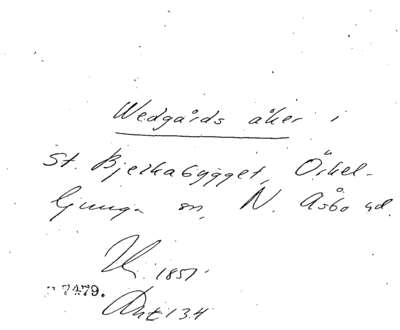 Wedgårds åker i
St. Bjerkabygget, Örkel-
ljunga sn, N. Åsbo hd.
1851.
7479.
134